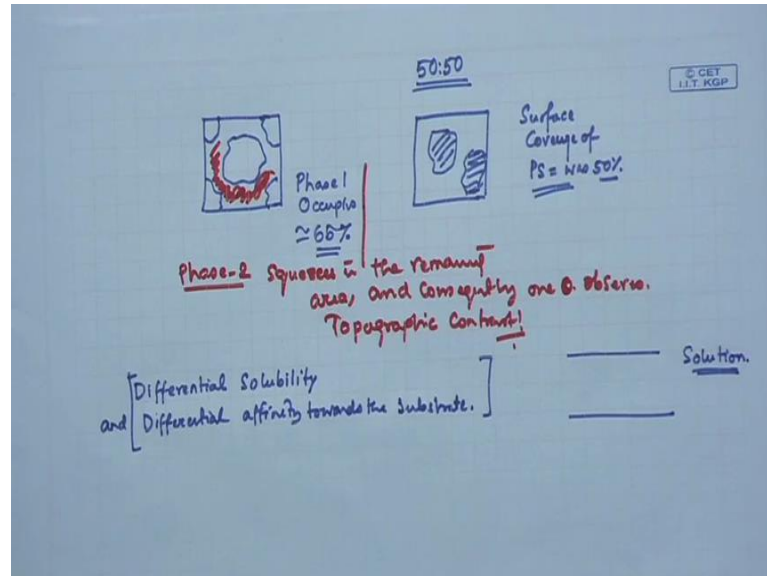 50:50
© CET
I.I.T. KGP
Surface
Coverage of
PS = was 50%.
Phase 1
Occupies
≃ 65%
Phase-2 Squeezes in the remaing
area, and consequtly one observs.
Topographic Contrast!
Differential Solubility
and Differential affinity towards the Substrate.
Solution.